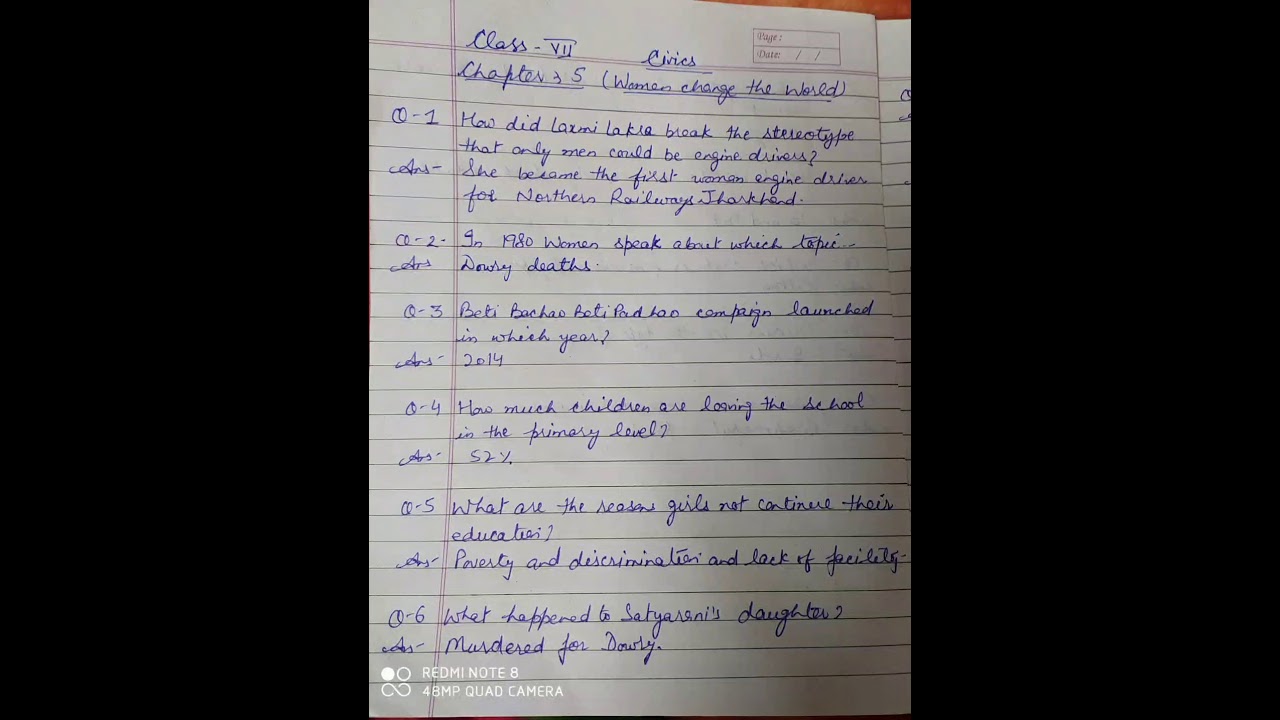 Page:
Date: / /
Class - VII
Civics
Chapter: 5 (Women change the World)
Q-1 How did Laxmi Lakra break the stereotype
that only men could be engine drivers?
Ans- She became the first women engine driver
for Northern Railways Jharkhand.
Q-2- In 1980 Women speak about which topic--
Ans Dowry deaths.
Q-3 Beti Bachao Beti Padhao campaign launched
in which year?
Ans- 2014
Q-4 How much children are leaving the school
in the primary level?
Ans- 52%
Q-5 What are the reasons girls not continue their
education?
Ans- Poverty and discrimination and lack of facility-
Q-6 What happened to Satyarani's daughter?
Ans- Murdered for Dowry.
REDMI NOTE 8
48MP QUAD CAMERA